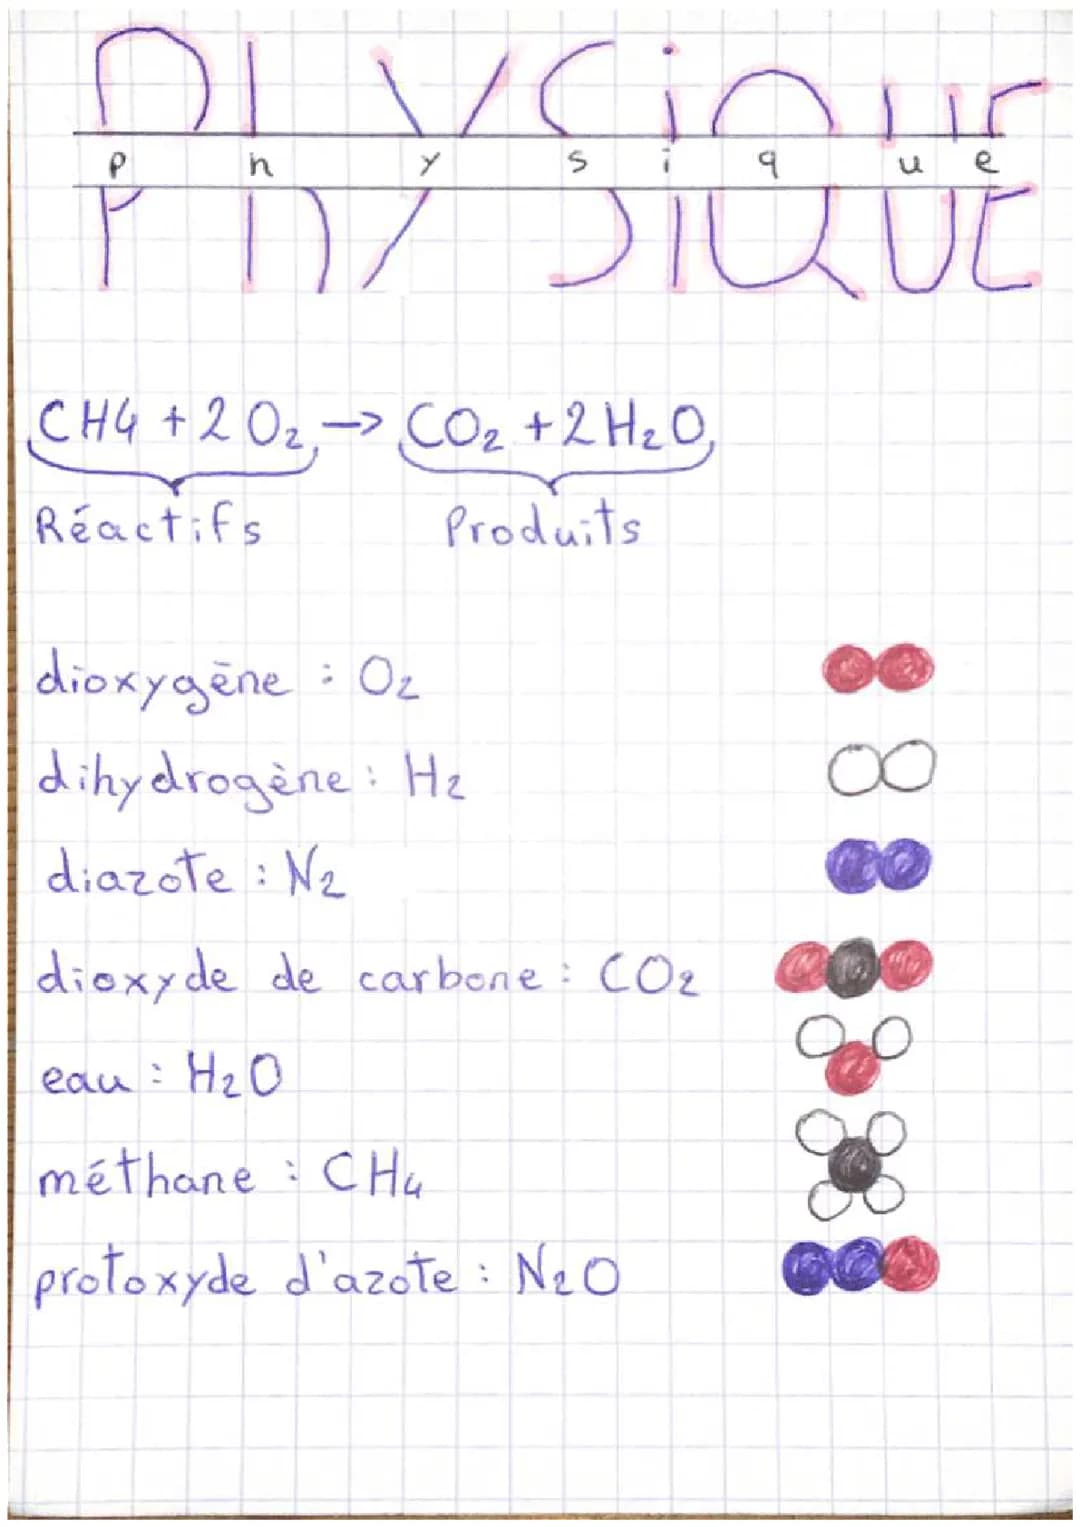 PHYSiQUE
p h y s i q u e
CH4 + 2 O₂ → CO₂ + 2 H₂O
Réactifs Produits
dioxygène : O₂
dihydrogène : H₂
diazote : N₂
dioxyde de carbone : CO₂
eau : H₂O
méthane : CH₄
protoxyde d'azote : N₂O